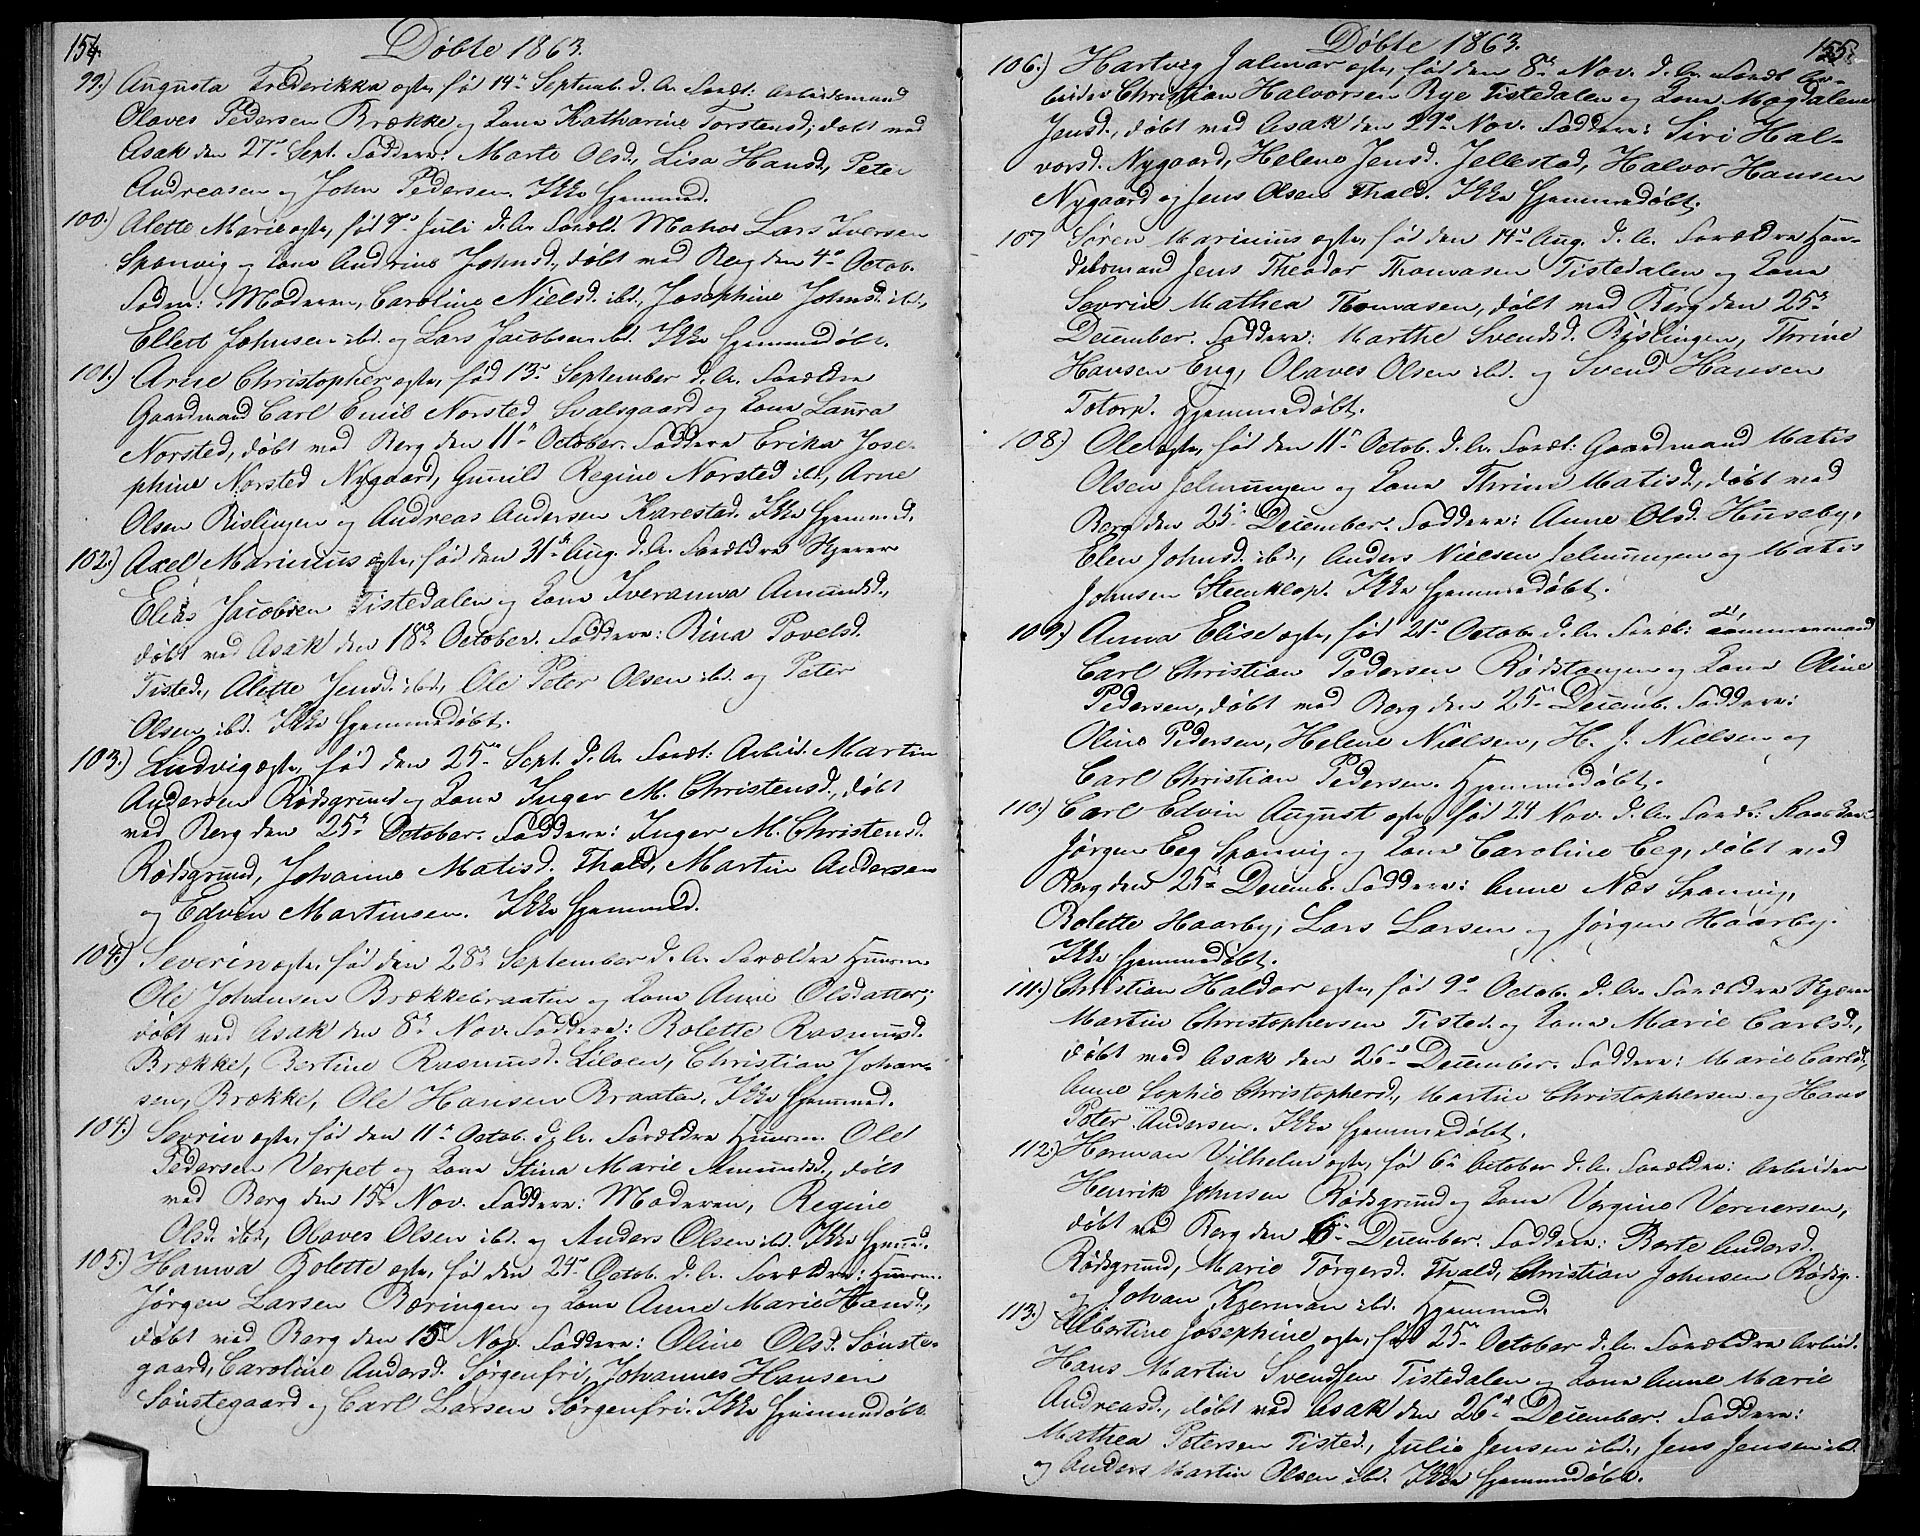 154.
Døbte 1863.
99.) Augusta Frederikka ægte, fød 14de Septemb. d. A. Foræl: Arbeidsmand
Olaves Pedersen Brække og Kone Katharine Torstensd, døbt ved
Asak den 27de Sept. Faddere: Marte Olsd., Lisa Hansd., Peter
Andreasen og John Pedersen. Ikke hjemmed.
100.) Alette Marie ægte, fød 9de Juli d. A. Foræld. Lars Iversen
Sponvig og Kone Andrine Johnsd., døbt ved Berg den 4de Octob.
Fadere: Moderen, Caroline Nielsd. ibd., Josephine Johnsd. ibd.,
Ellert Johnsen ibd. og Lars Jacobsen ibd. Ikke hjemmedøbt.
101.) Arne Christopher ægte, fød 13de September d. A. Forældre
Gaardmand Carl Emil Norsted Svalsgaard og Kone Laura
Norsted, døbt ved Berg den 11te October. Faddere Erika Jose-
phine Norsted Nygaard, Gunild Regine Norsted ibd., Arne
Olsen Rislingen og Andreas Andersen Karestad. Ikke hjemmed.
102.) Axel Marinius ægte, fød den 31te Aug. d. A. Forældre
Elias Jacobsen Tistedalen og Kone Iveranna Amundsd.,
døbt ved Asak den 18de October. Faddere: Rina Povelsd.
Tisted., Alette Jensd. ibd., Ole Peter Olsen ibd. og Peter
Olsen ibd. Ikke hjemmedøbt.
103.) Ludvig ægte, fød den 25de Sept. d. A. Foræl: Arbeid. Martin
Andersen Rødsgrund og Kone Inger M. Christensd., døbt
ved Berg den 25de October. Faddere: Inger M. Christensd.
Rødsgrund, Johanne Matisd. Thald, Martin Andersen
og Edvin Martinsen. Ikke hjemmed.
104.) Severin ægte, fød den 28de September d. A. Forældre Huusm.
Ole Johansen Brækkebraaten og Kone Anne Olsdatter;
døbt ved Asak den 8de Nov. Faddere: Bolette Rasmusd.
Brække, Bertine Rasmusd. Liloen, Christian Johan-
sen, Brække, Ole Hansen Braaten. Ikke hjemmed.
104.) Sevrin ægte, fød den 11te Octob. d. A. Forældre Huusm. Ole
Pedersen Verpet og Kone Stina Marie Amundsd., døbt
ved Berg den 15de Nov. Faddere: Moderen, Regine
Olsd. ibd., Olaves Olsen ibd. og Anders Olsen ibd. Ikke hjemmd.
105.) Hanna Bolette ægte, fød den 24de Octob. d. A. Forældre: Huusm.
Jørgen Larsen Bæringen og Kone Anne Marie Hansd.,
døbt ved Berg den 15de Nov. Faddere: Oline Olsd. Sønste-
gaard, Caroline Andersd. Sørgenfri, Johannes Hansen
Sønstegaard og Carl Larsen Sørgenfri. Ikke hjemmedøbt.
Døbte 1863.
155.
106.) Hartvig Jalmar ægte, fød den 8de Nov. d. A. Foræl: Ar-
beider Christian Halvorsen Rye Tistedalen og Kone Magdalene
Jensd., døbt ved Asak den 29de Nov. Faddere: Siri Hal-
vorsd. Nygaard, Helene Jensd. Jellestad, Halvor Hansen
Nygaard og Jens Olsen Thald. Ikke hjemmedøbt.
107 Søren Marinius ægte, fød den 14de Aug. d. A. Forældre Han-
delsmand Jens Theodor Thomasen Tistedalen og Kone
Sevrin Mathea Thomasen, døbt ved Berg den 25de
December. Faddere: Marthe Svendsd. Rislingen, Thrine
Hansen Eng, Olaves Olsen ibd. og Svend Hansen
Totorp. Hjemmedøbt.
108.) Ole ægte, fød den 11te Octob. d. A. Foræl: Gaardmand Matis
Olsen Jelmungen og Kone Thrine Matisd., døbt ved
Berg den 25de December. Faddere: Anne Olsd. Huseby,
Elen Johnsd. ibd., Anders Nielsen Jelmungen og Matis
Johnsen Steenklop. Ikke hjemmedøbt.
109.) Anna Elise ægte, fød 21de Octob. d. A. Foræl: Tømmermand
Carl Christian Pedersen Rødstangen og Kone Oline
Pedersen, døbt ved Berg den 25de Decemb. Faddere:
Oline Pedersen, Helene Nielsen, H. J. Nielsen og
Carl Christian Pedersen. Hjemmedøbt.
110.) Carl Edvin August ægte, fød 24 Nov. d. A. Foræl:
Jørgen Eeg Sponvig og Kone Caroline Eeg, døbt ved
Berg den 25de Decemb. Faddere: Anne Næs Sponvig,
Bolette Haarby, Lars Larsen og Jørgen Haarby.
Ikke hjemmedøbt.
111.) Christian Haldor ægte, fød 9de Octob. d. A. Forældre
Martin Christophersen Tisted. og Kone Marie Carlsd.,
døbt ved Asak den 26de December. Faddere: Marie Carlsd.,
Anne Sophie Christophersd., Martin Christophersen og Hans
Peter Andersen. Ikke hjemmedøbt.
112.) Herman Vilhelm ægte, fød 6te October d. A. Forældre: Arbeider
Henrik Johnsen Rødsgrund og Kone Vergine Vernersen,
døbt ved Berg den 6te December. Faddere: Berte Andersd.
Rødsgrund, Marie Torgersd. Thald, Christian Johnsen Rødsg.
og Johan Kjerman ibd. Hjemmed.
113.) Albertine Josephine ægte, fød 25de October d. A. Forældre Arbeid.
Hans Martin Svendsen Tistedalen og Kone Anne Marie
Andreasd., døbt ved Asak den 26de December. Faddere:
Mathea Petersen Tisted., Julie Jensen ibd., Jens Jensen ibd.
og Anders Martin Olsen ibd. Ikke hjemmedøbt.